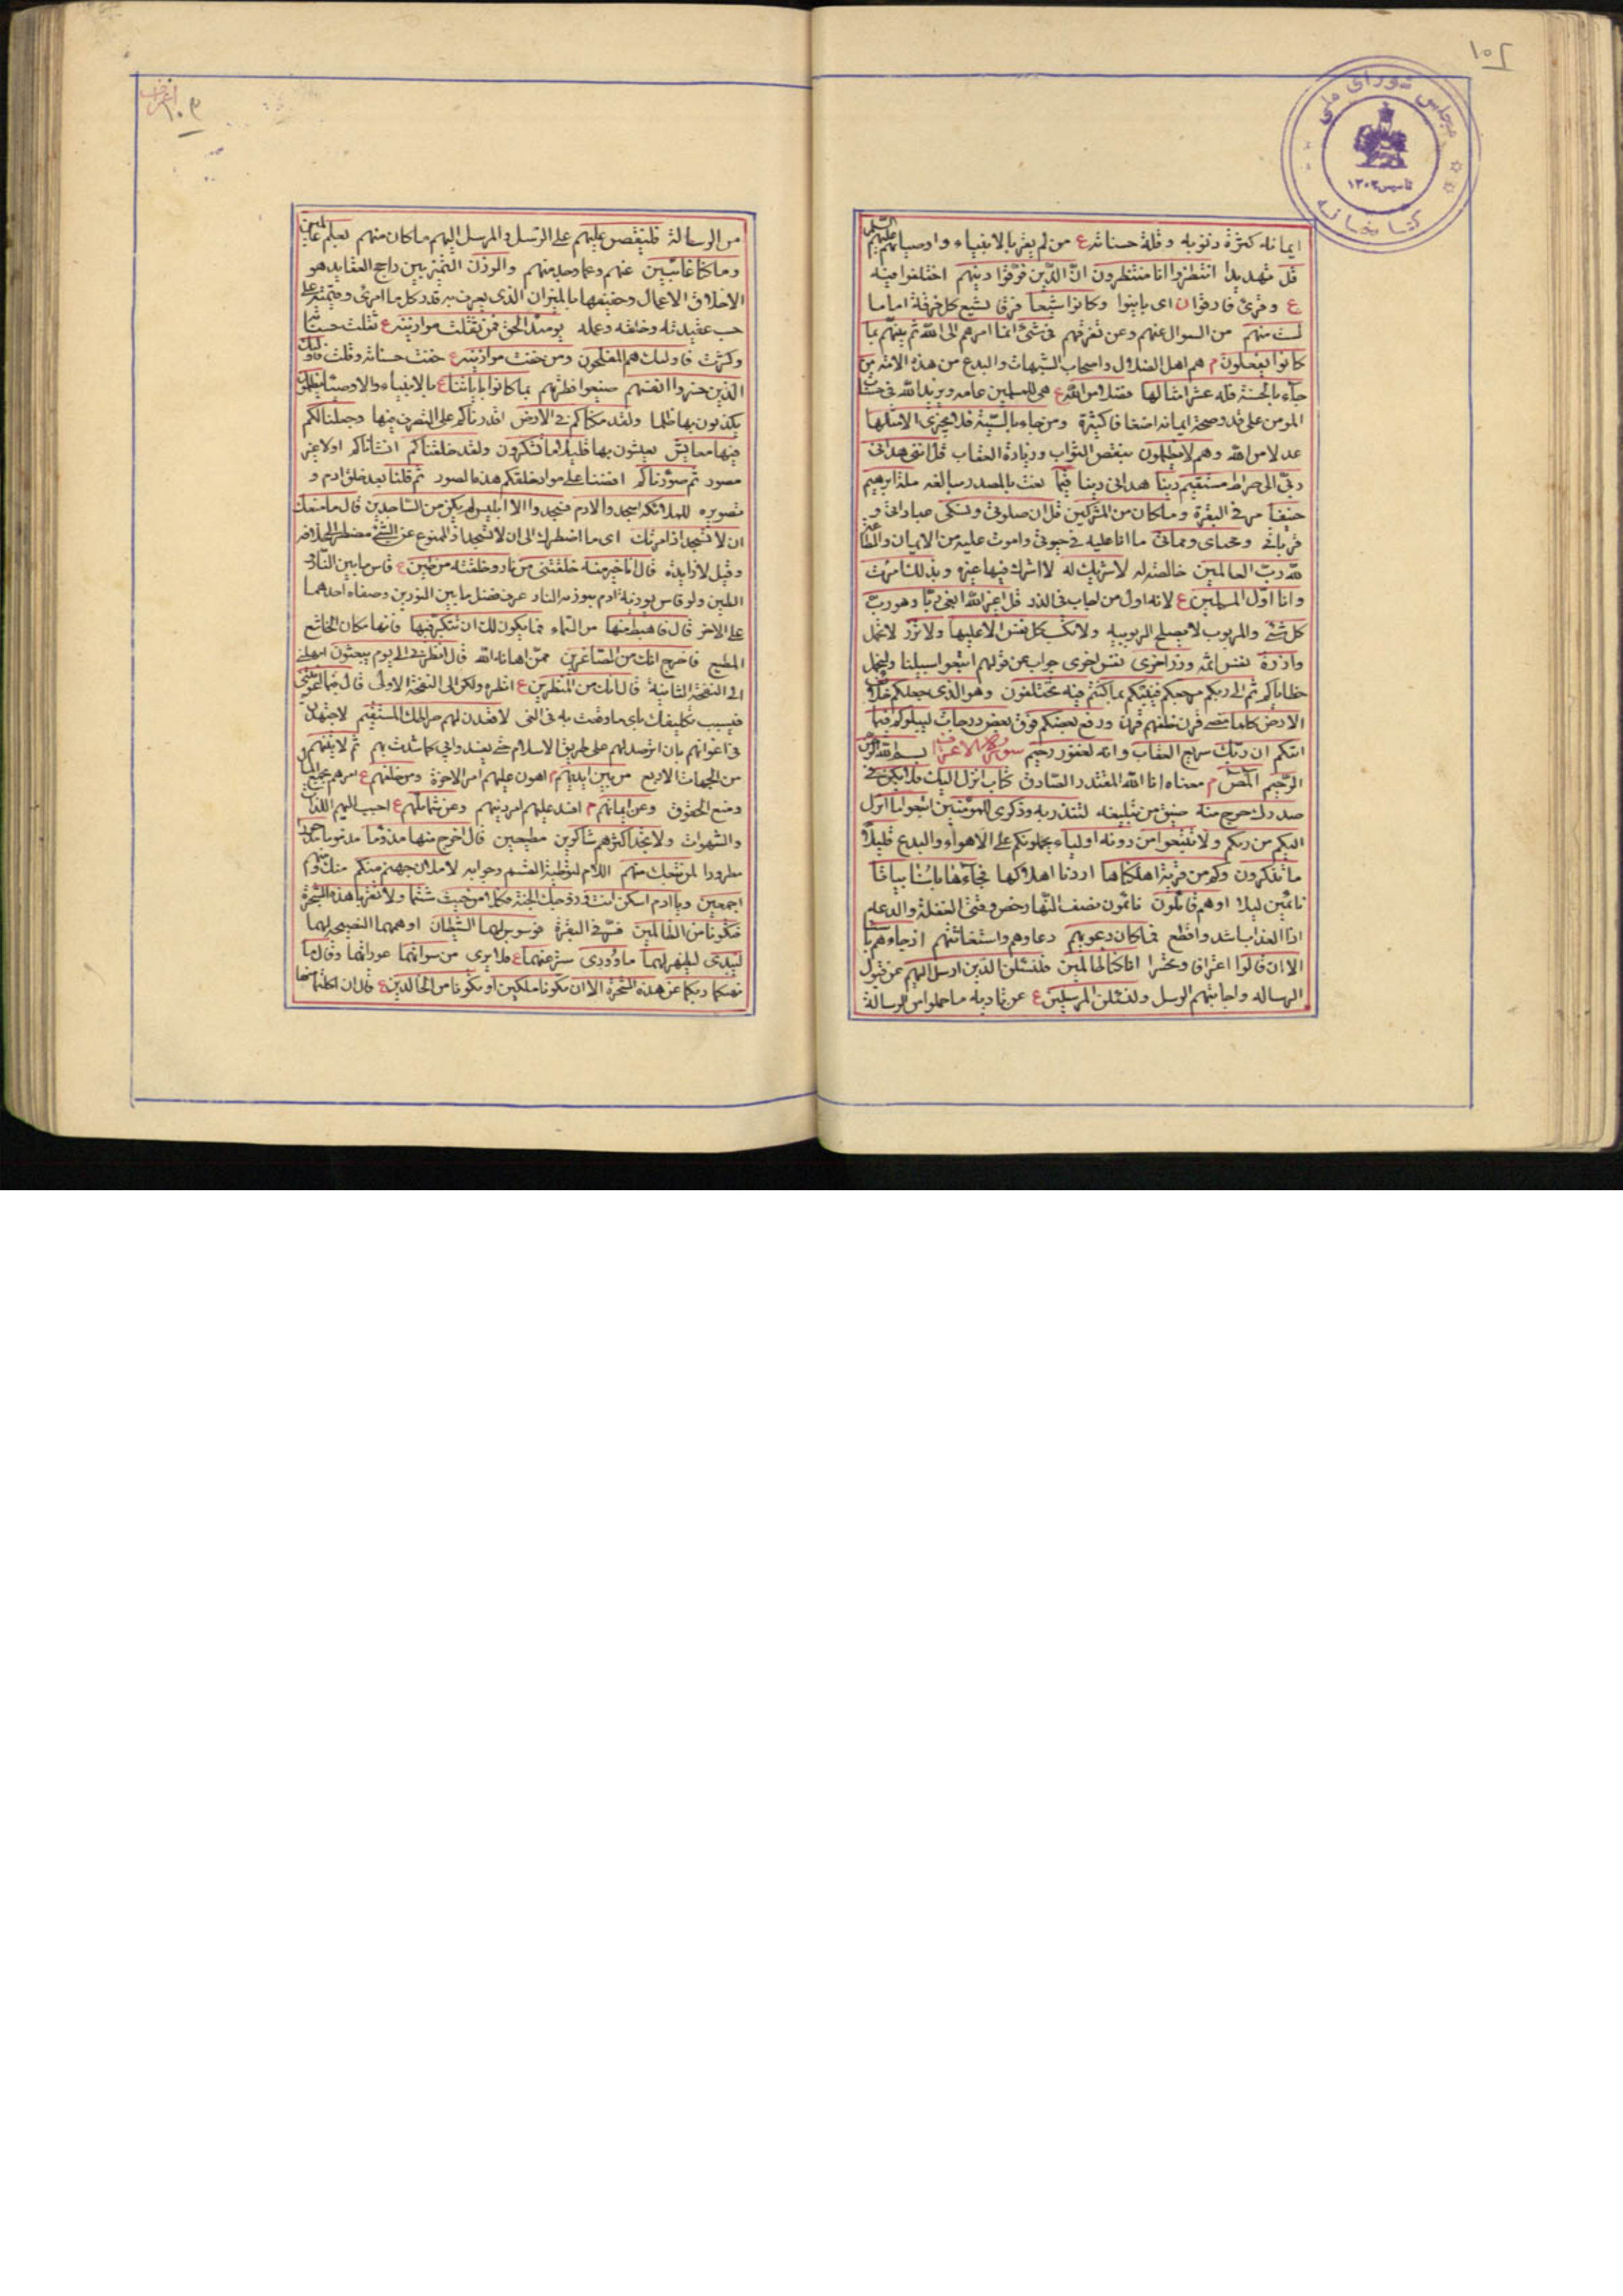 ١٠٢
مجلس شورای ملی
تاسیس ١٣٠٢
کتابخانه
ايمانه كثرة ذنوبه وقلة حسناته ع من لم يقر بالانبياء واوصيائهم عليهم السلم
قل تهديدا انتظروا انا منتظرون ان الذين فرقوا دينهم اختلفوا فيه
ع وقرئ فارقوا اى باينوا وكانوا شيعا فرقا تشيع كل فرقة اماما
لست منهم من السوال عنهم وعن تفرقهم فى شئ انما امرهم الى الله ثم ينبئهم بما
كانوا يفعلون م هم اهل الضلال واصحاب الشبهات والبدع من هذه الامة من
جاء بالحسنة فله عشر امثالها فضلا من الله ع هى للمسلمين عامه ويزيد الله فى حسنات
المومن على قدر صحة ايمانه اضعافا كثيرة ومن جاء بالسيئة فلا يجزى الا مثلها
عدلا من الله وهم لا يظلمون بنقص الثواب وزيادة العقاب قل اننى هدانى
ربى الى صراط مستقيم دينا هدانى دينا قيما نعت بالمصدر مبالغه ملة ابرهيم
حنيفا مر فى البقرة وما كان من المشركين قل ان صلوتى ونسكى عباداتى و
قربانى ومحياى ومماتى ما انا عليه فى حيوتى واموت عليه من الايمان والطاعة
لله رب العالمين خالصة له لا شريك له لا اشرك فيها غيره وبذلك امرت
وانا اول المسلمين ع لانه اول من اجاب فى الذر قل اغير الله ابغى ربا وهو رب
كل شئ والمربوب لا يصلح للربوبيه ولا تكسب كل نفس الا عليها ولا تزر لا تحمل
وازرة نفس اثمه وزر اخرى نفس اخرى جواب عن قولهم اتبعوا سبيلنا ولنحمل
خطاياكم ثم الى ربكم مرجعكم فينبئكم بما كنتم فيه تختلفون وهو الذى جعلكم خلائف
الارض كلما مضى قرن خلفهم قرن ورفع بعضكم فوق بعض درجات ليبلوكم فيما
اتيكم ان ربك سريع العقاب وانه لغفور رحيم سورة الاعراف بسم الله الرحمن
الرحيم المص م معناه انا الله المقتدر الصادق كتاب انزل اليك فلا يكن فى
صدرك حرج منه ضيق من تبليغه لتنذر به وذكرى للمؤمنين اتبعوا ما انزل
اليكم من ربكم ولا تتبعوا من دونه اولياء يحملونكم على الاهواء والبدع قليلا
ما تذكرون وكم من قرية اهلكناها اردنا اهلاكها فجاءها باسنا بياتا
نائمين ليلا او هم قائلون نائمون نصف النهار خص وقتى الغفلة والدعه
اذا العذاب اشد وافظع فما كان دعويهم دعاوهم واستغاثتهم اذ جاءهم باسنا
الا ان قالوا اعترافا وتحسرا انا كنا ظالمين فلنسئلن الذين ارسل اليهم عن قبول
الرساله واجابتهم الرسل ولنسئلن المرسلين ع عن تاديه ما حملوا من الرسالة
١٠٣
من الرسالة فلنقصن عليهم على الرسل والمرسل اليهم ما كان منهم بعلم عالمين
وما كنا غائبين عنهم وعما وجد منهم والوزن التميز بين راجح العقايد هو
الاخلاق الاعمال وخفيفها بالميزان الذى يعرف به قدر كل ما امرئ وقيمته على
حسب عقيدته وخلقه وعمله يومئذ الحق فمن ثقلت موازينه ع ثقلت حسناته
وكثرت فاولئك هم المفلحون ومن خفت موازينه ع خفت حسناته وقلت فاولئك
الذين خسروا انفسهم ضيعوا فطرتهم بما كانوا باياتنا ع بالانبياء والاوصياء يظلمون
يكذبون بها ظلما ولقد مكناكم فى الارض اقدرناكم على التصرف فيها وجعلنا لكم
فيها معايش تعيشون بها قليلا ما تشكرون ولقد خلقناكم انشاناكم اولا غير
مصور ثم صورناكم افضنا على مواد خلقكم هذه الصور ثم قلنا بعد خلق ادم و
تصويره للملائكة اسجدوا لادم فسجدوا الا ابليس لم يكن من الساجدين قال ما منعك
ان لا تسجد اذ امرتك اى ما اضطرك الى ان لا تسجد اذ الممنوع عن الشئ مضطر الى خلافه
وقيل لا زايدة قال انا خير منه خلقتنى من نار وخلقته من طين ع قاس ما بين النار و
الطين ولو قاس نورية ادم بنورية النار عرف فضل ما بين النورين وصفاء احدهما
على الاخر قال فاهبط منها من السماء فما يكون لك ان تتكبر فيها فانها مكان الخاشع
المطيع فاخرج انك من الصاغرين ممن اهانه الله قال انظرنى الى يوم يبعثون امهلنى
الى النفخة الثانية قال انك من المنظرين ع انظره ولكن الى النفخة الاولى قال فبما اغويتنى
فبسبب تكليفك اياى ما وقعت به فى الغى لاقعدن لهم صراطك المستقيم لاجتهدن
فى اغوائهم بان اترصد لهم على طريق الاسلام حتى يفسدوا بى كما فسدت بهم ثم لاتينهم
من الجهات الاربع من بين ايديهم اهون عليهم امر الاخرة ومن خلفهم ع امرهم بجمع المال
ومنع الحقوق وعن ايمانهم م افسد عليهم امر دينهم وعن شمائلهم ع احبب اليهم اللذات
والشهوات ولا تجد اكثرهم شاكرين مطيعين قال اخرج منها مذؤما مذموما مدحورا
مطرودا لمن تبعك منهم اللام لتوطية القسم وجوابه لاملان جهنم منكم منك ومنهم
اجمعين ويا ادم اسكن انت وزوجك الجنة فكلا من حيث شئتما ولا تقربا هذه الشجرة
فتكونا من الظالمين فسر فى البقرة فوسوس لهما الشيطان اوهمهما النصيحة لهما
ليبدى ليظهر لهما ما وورى ستر عنهما ع فلا يرى من سواتهما عوراتهما وقال ما
نهيكما ربكما عن هذه الشجرة الا ان تكونا ملكين او تكونا من الخالدين ع قال ان اكلتما منها